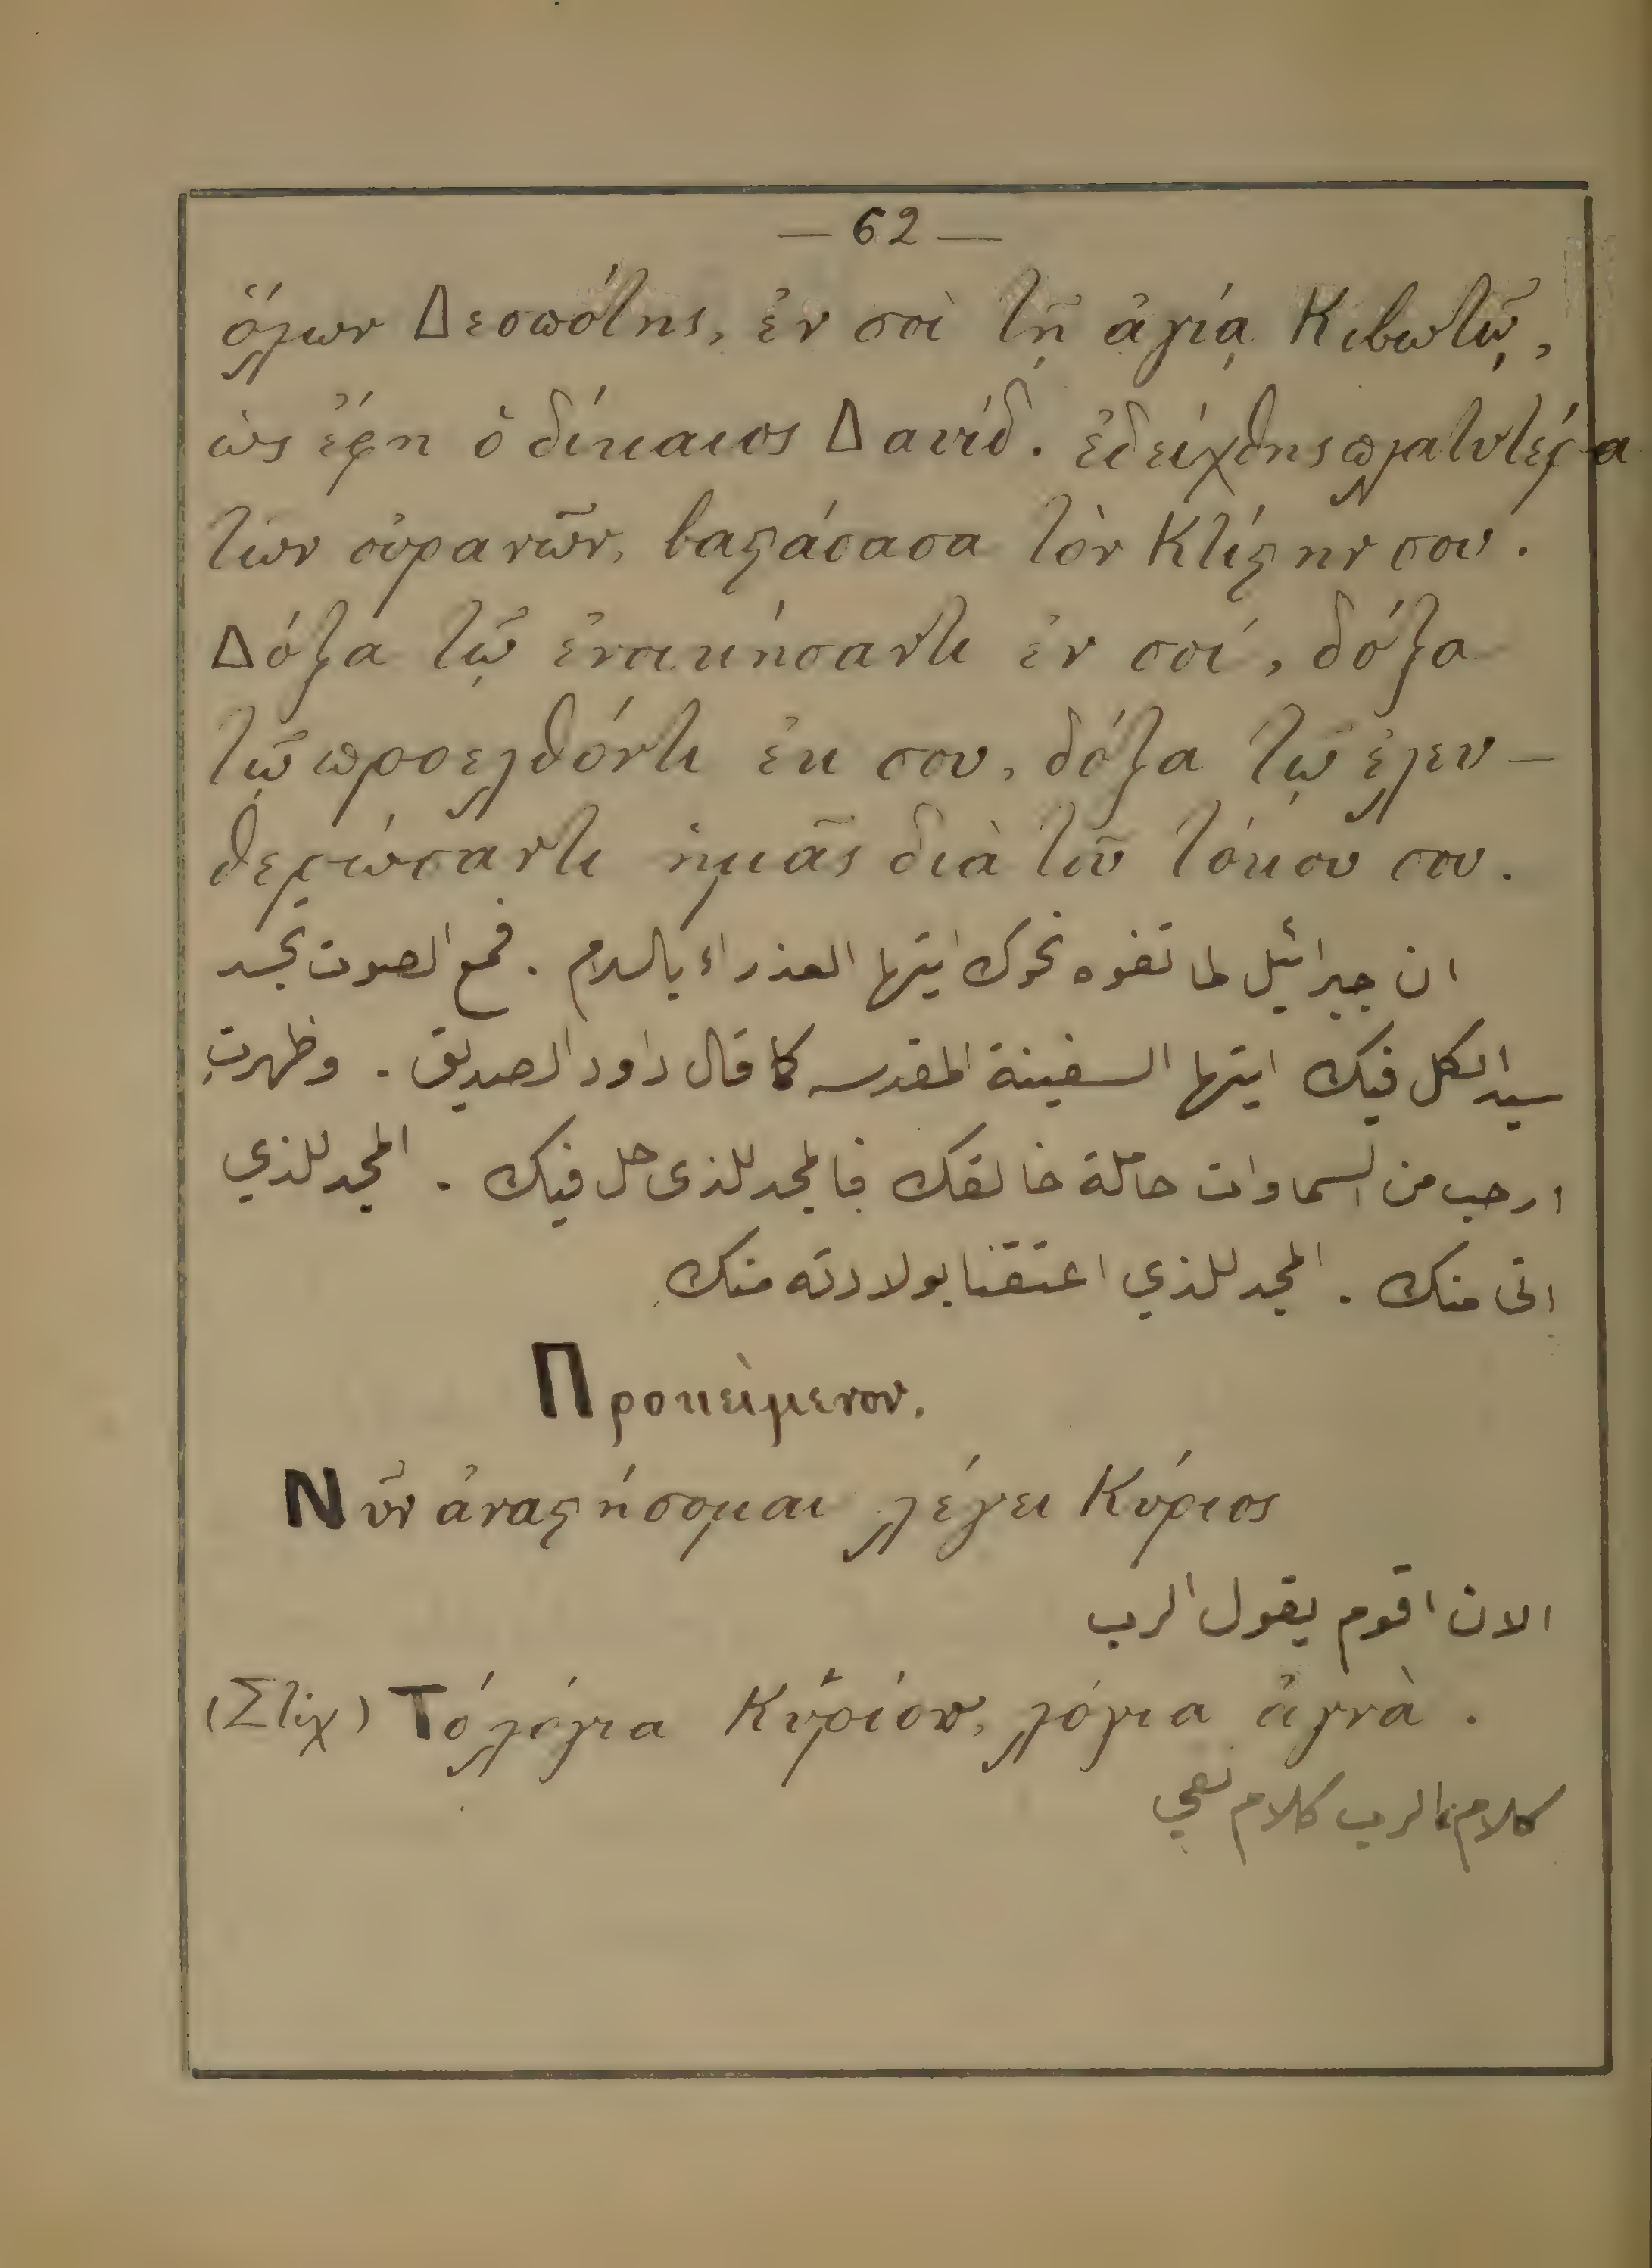 — 62 —
ὅλων Δεσπότης, ἐν σοὶ τῇ ἁγίᾳ Κιβωτῷ,
ὡς ἔφη ὁ δίκαιος Δαυίδ. ἐδείχθης πλατυτέρα
τῶν οὐρανῶν, βαϛάσασα τὸν Κτίϛην σου.
Δόξα τῷ ἐνοικήσαντι ἐν σοί, δόξα
τῷ προελθόντι ἐκ σου, δόξα τῷ ἐλευ—
θερώσαντι ἡμᾶς διὰ τοῦ τόκου σου.
ان جبرائيل لما تفوه نحوك ايتها العذراء بالسلام . فمع الصوت تجسد
سيد الكل فيك ايتها السفينة المقدسه كما قال داود الصديق . وظهرتِ
ارحب من السماوات حاملة خالقك فالمجد للذى حل فيك . المجد للذي
اتى منك . المجد للذي اعتقنا بولادته منك
Προκείμενον.
Νῦν ἀναϛήσομαι λέγει Κύριος
الان اقوم يقول الرب
(Στίχ) Τό λόγια Κυρίου, λόγια ἁγνὰ .
كلام الرب كلام نقي